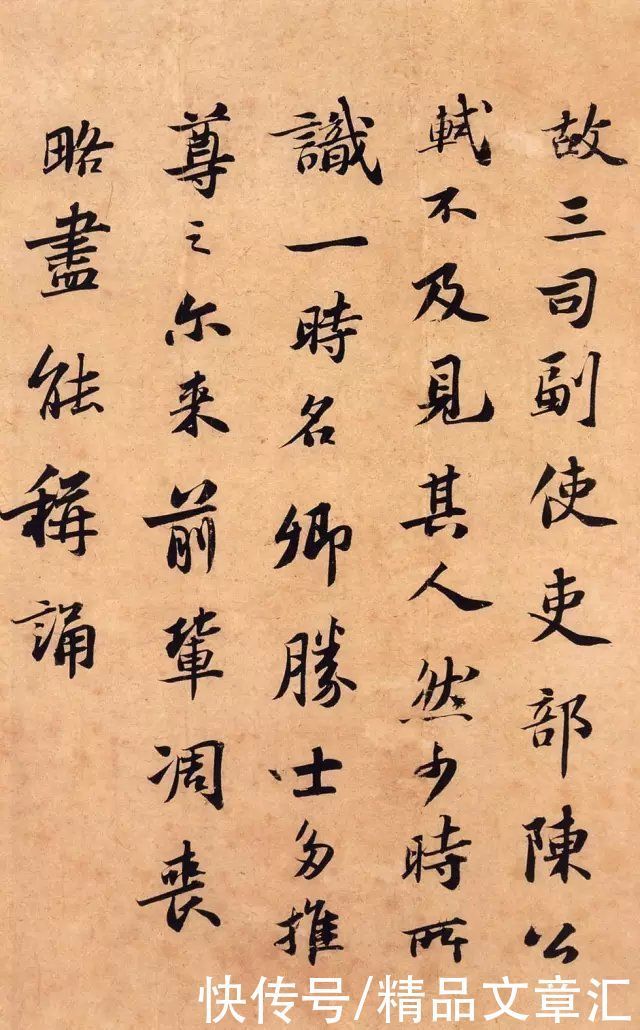 故三司副使吏部陳公
軾不及見其人然少時所
識一時名卿勝士多推
尊之尔来前輩凋喪
略盡能稱誦
快传号/精品文章汇